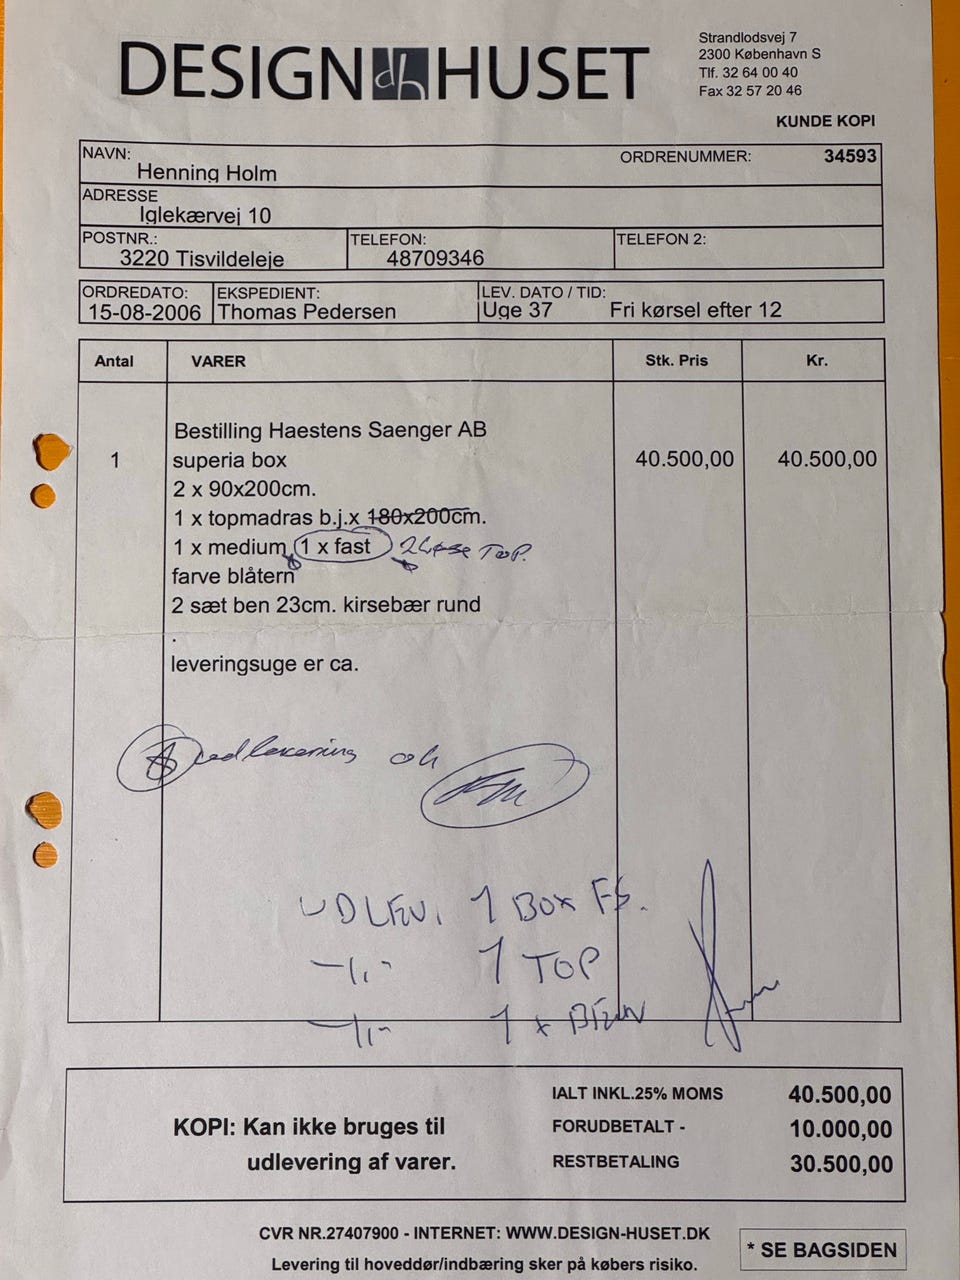 DESIGN dh HUSET
Strandlodsvej 7
2300 København S
Tlf. 32 64 00 40
Fax 32 57 20 46
KUNDE KOPI
NAVN:
Henning Holm
ORDRENUMMER: 34593
ADRESSE
Iglekærvej 10
POSTNR.:
3220 Tisvildeleje
TELEFON:
48709346
TELEFON 2:
ORDREDATO:
15-08-2006
EKSPEDIENT:
Thomas Pedersen
LEV. DATO / TID:
Uge 37 Fri kørsel efter 12
Antal VARER Stk. Pris Kr.
Bestilling Haestens Saenger AB
1 superia box 40.500,00 40.500,00
2 x 90x200cm.
1 x topmadras b.j.x 180x200cm.
1 x medium, 1 x fast 2 Løse TOP.
farve blåtern
2 sæt ben 23cm. kirsebær rund
.
leveringsuge er ca.
ok
UDLEV. 1 BOX FS.
-,,- 1 TOP
-,,- 1 x
KOPI: Kan ikke bruges til
udlevering af varer.
IALT INKL.25% MOMS 40.500,00
FORUDBETALT - 10.000,00
RESTBETALING 30.500,00
CVR NR.27407900 - INTERNET: WWW.DESIGN-HUSET.DK
Levering til hoveddør/indbæring sker på købers risiko.
* SE BAGSIDEN